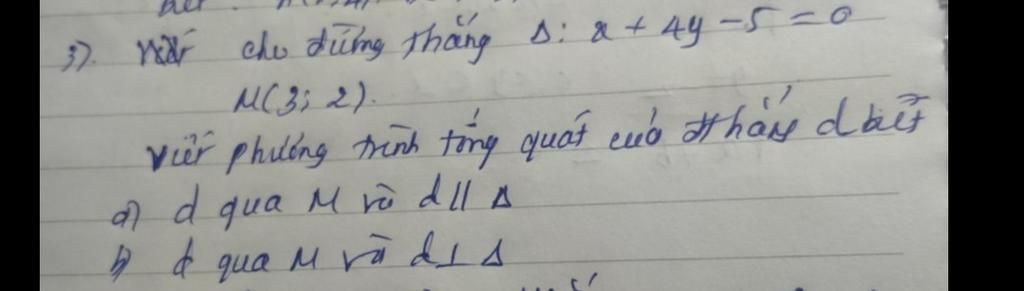 3). cho đường thẳng Δ: x + 4y - 5 = 0
M(3; 2).
Viết phương trình tổng quát của đthẳng d biết
a) d qua M và d // Δ
b) d qua M và d ⊥ Δ